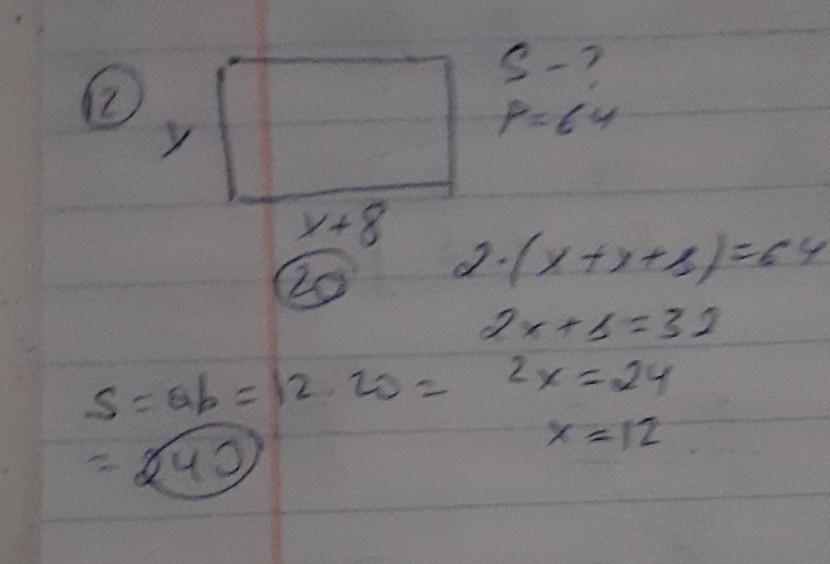 S - ?
12
x
P = 64
x + 8
20
2·(x + x + 8) = 64
2x + 8 = 32
2x = 24
x = 12
S = ab = 12·20 =
= 240